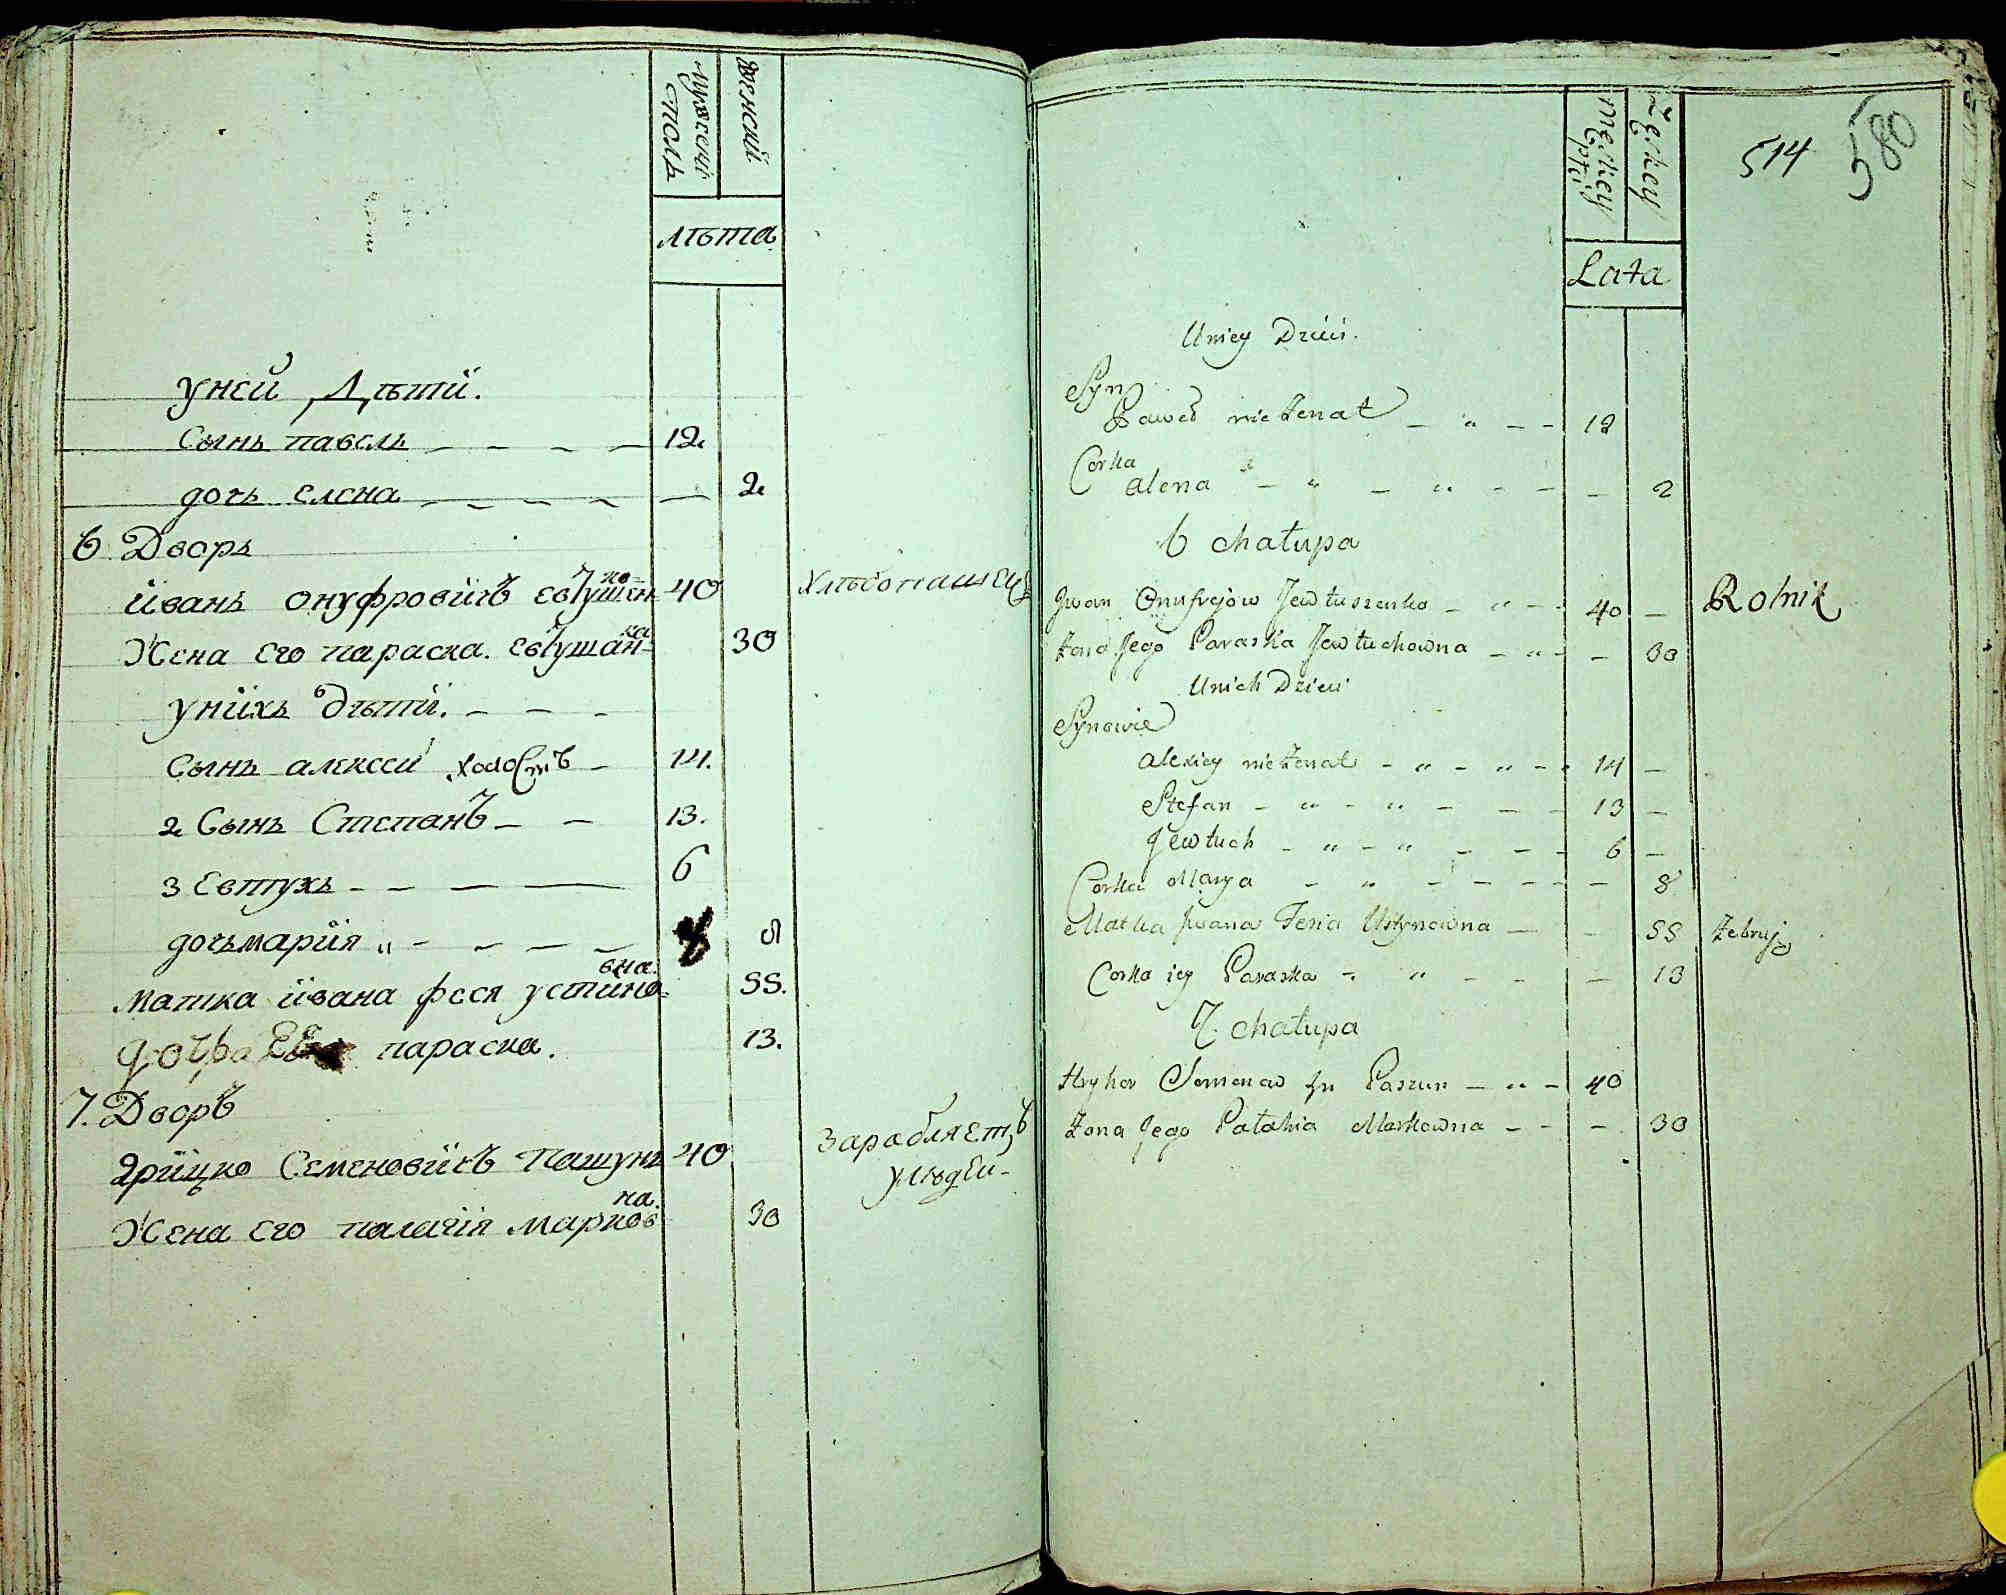 мужескій
полъ
женскій
лѣта
уней Дѣти.
Сынъ павелъ — — — — 12
дочь елена — — — — — 2
6 Дворъ
иванъ онуфровичъ евтушен 40 Хлѣбопашецъ
ко
Жена его параска евтушан 30
ка
унихъ дѣти. — — —
Сынъ алексей холостъ — 14.
2 Сынъ Степанъ — — 13.
3 Евтухъ — — — — 6
дочь мария „ — — — — 8
матка ивана феся устино 55.
вна.
дочь параска. 13.
7. Дворъ
Грицко Семеновичъ пашунъ 40 Зарабляетъ
улюдей
Жена его палагія марков 30
на.
męzkey
płci
Żęskey
514 580
Lata
Uniey Dzieci.
Syn
Paweł nieżenat — „ — — 12
Corka
alena — „ — „ — — — 2
6 chałupa
Jwan Onufrejow Jewtuszenko — „ — 40 — Rolnik
Żona Jego Paraska Jewtuchowna — „ — — 30
Unich Dzieci
Synowie
alexiey nieżenat — „ — „ — 14 —
Stefan — „ — „ — — — 13 —
Jewtuch — „ — „ — — — 6 —
Corka Marya — „ — — — — — 8
Matka Jwana Fesia Ustynowna — — 55 żebrują
Corka iey Paraska — „ — — — 13
7. chałupa
Hryhor Semenow Paszun — „ — 40
Żona Jego Palahia Markowna — — — 30